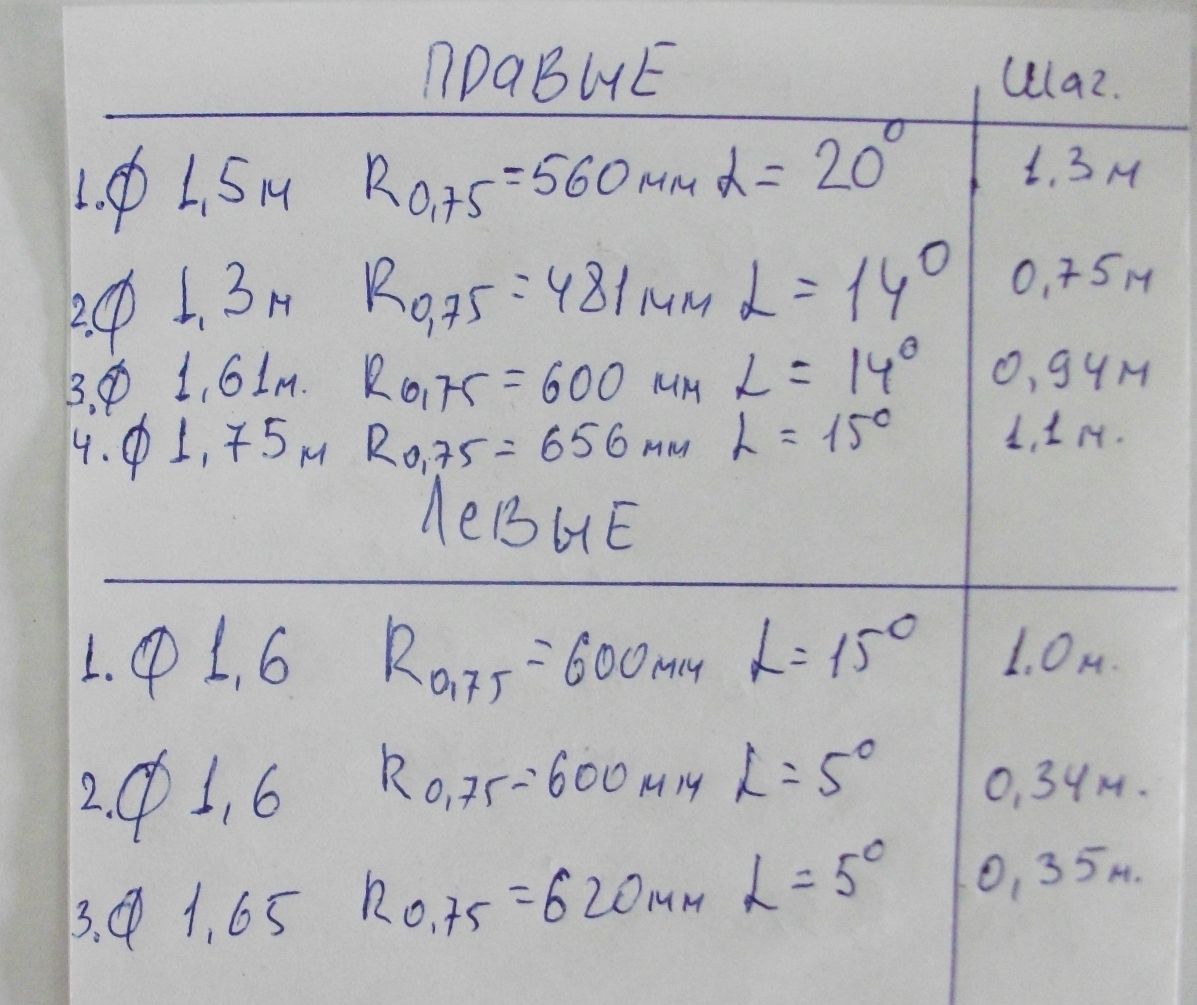 ПРАВЫЕ Шаг.
1. Ф 1,5м R0,75 = 560мм L = 20° 1.3м
2. Ф 1,3м R0,75 = 481мм L = 14° 0,75м
3. Ф 1,61м. R0,75 = 600 мм L = 14° 0,94м
4. Ф 1,75м R0,75 = 656мм L = 15° 1,1м.
ЛеВЫЕ
1. Ф 1,6 R0,75 = 600мм L = 15° 1.0м.
2. Ф 1,6 R0,75 = 600мм L = 5° 0,34м.
3. Ф 1,65 R0,75 = 620мм L = 5° 0,35м.